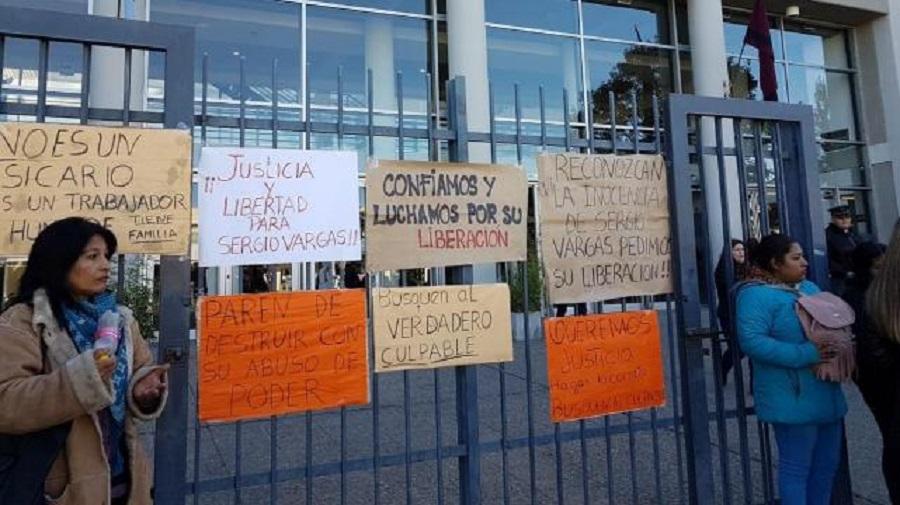 NO ES UN
SICARIO
ES UN TRABAJADOR
HUMILDE TIENE
FAMILIA
¡¡JUSTICIA
Y
LIBERTAD
PARA
SERGIO VARGAS!!
CONFÍAMOS Y
LUCHAMOS POR SU
LIBERACION
RECONOZCAN
LA INOCENCIA
DE SERGIO
VARGAS PEDIMOS
SU LIBERACION!!
PAREN DE
DESTRUIR CON
SU ABUSO DE
PODER
BUSQUEN AL
VERDADERO
CULPABLE
QUEREMOS
JUSTICIA
Hagan lo correcto
BUSQUEN